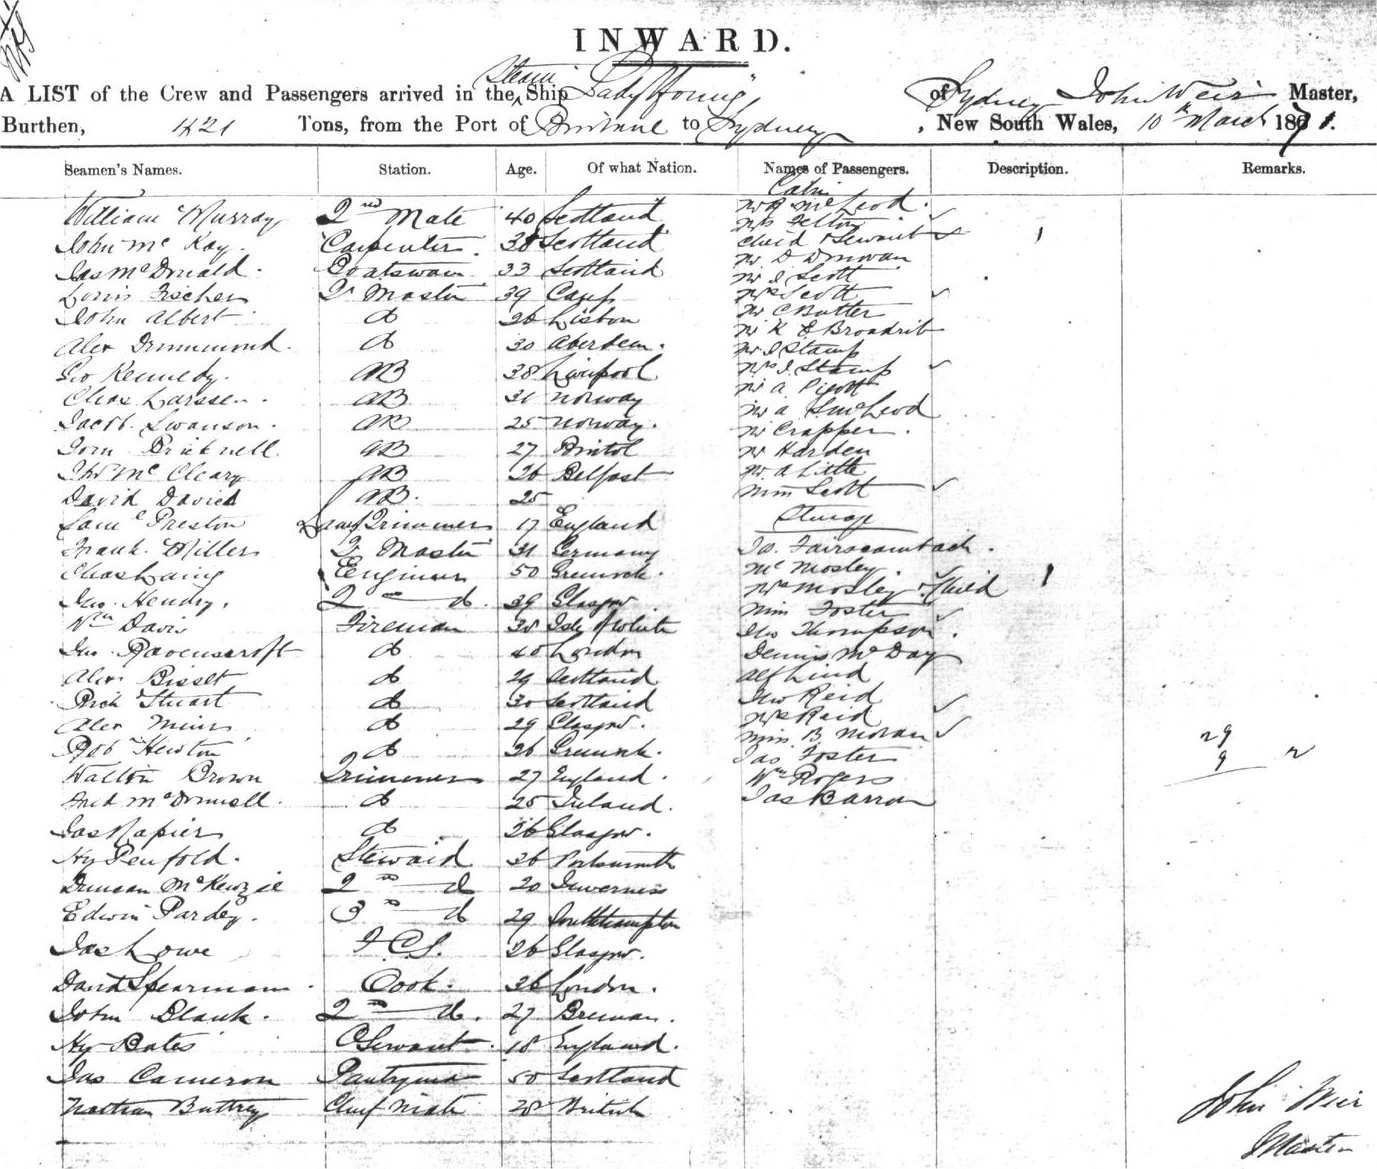 INWARD.
A LIST of the Crew and Passengers arrived in the Steam Ship "Lady Young" of Sydney John Weir Master,
Burthen, 421 Tons, from the Port of Brisbane to Sydney, New South Wales, 10th March 1871.
Seamen's Names. Station. Age. Of what Nation. Names of Passengers. Description. Remarks.
Cabin
William Murray 2nd Mate 40 Scotland Mr McLeod
John McKay Carpenter 38 Scotland Mrs Felton
Child & Servant 1
Jas McDonald Boatswain 33 Scotland Mr D Donovan
Mr J Scott
Louis Fischer Qr Master 39 Mrs Scott
John Albert do 26 Lisbon Mr C Butter
Mr K E Broadrib
Alex Drummond do 30 Aberdeen Mr J Stamp
Geo Kennedy AB 38 Liverpool Mrs J. Stamp
Mr A Pigott
Chas Larssen AB 31 Norway Mr A McLeod
Jacob Swanson AB 25 Norway Mr Crapper
Tom Bricknell AB 27 Bristol Mr Harden
Thos McCleary AB 26 Belfast Mr A Little
David David AB 25 Miss Scott
Saml Preston Lamp Trimmer 17 England Steerage
Frank Miller Qr Master 31 Germany Jas
Chas Laing Engineer 50 Greenock Mr Mosley
Jno Hendry 2nd do 39 Glasgow Mrs Mosley & Child 1
Miss Foster
Wm Davis Fireman 38 Isle of White Jno Thompson
Jno Ravenscroft do 40 London Dennis McDay
Alex Bisset do 29 Scotland Alf Lind
Rich Stuart do 30 Scotland Jno Reid
Mrs Reid
Alex do 29 Glasgow Miss B Moran 29
Rob Hewton do 26 Greenock Jas Foster 9 2
Walton Brown Trimmer 27 England Wm Rogers
Fred McDonnell do 25 Ireland Jas Barron
Jas Napier do 26 Glasgow
Hy Penfold Steward 36 Portsmouth
Duncan McKenzie 2nd do 20 Inverness
Edwin Pardey 3rd do 29 Southampton
Jas Lowe F.C.S. 26 Glasgow
David Spearman Cook 36 London
John Blank 2nd do 27 Bremen
Hy Bates Servant 18 England
Jas Cameron Pantryman 50 Scotland
Nathan Buttrey Chief Mate 28 British
John Weir
Master